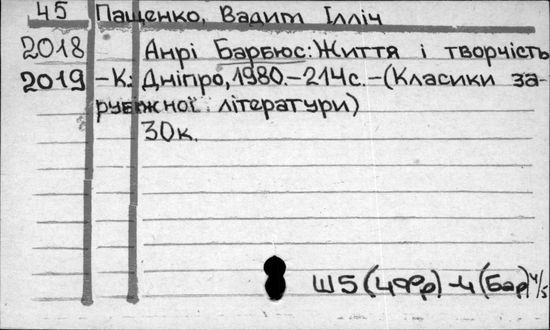 45 Пащенко, Вадим Ілліч
2018 Анрі Барбюс: Життя і творчість
2019 –К.: Дніпро, 1980.–214с.–(Класики за-
рубіжної літератури)
30к.
Ш5(4Фр)-4(Бар)4/5